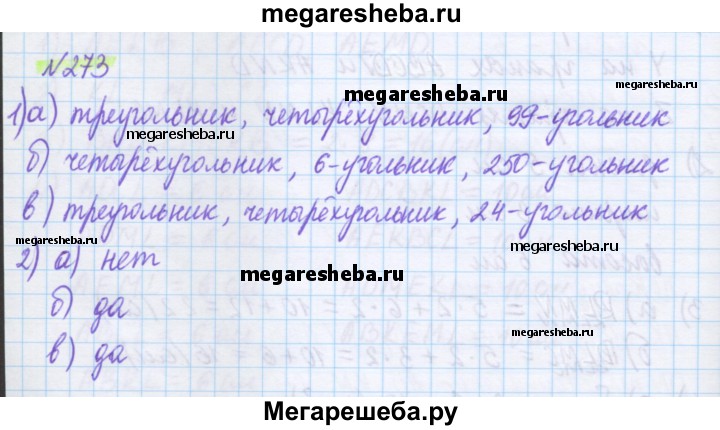 megaresheba.ru
№273
megaresheba.ru
1) а) треугольник, четырёхугольник, 99-угольник
megaresheba.ru
б) четырёхугольник, 6-угольник, 250-угольник
в) треугольник, четырёхугольник, 24-угольник
megaresheba.ru
megaresheba.ru
2) а) нет
megaresheba.ru
б) да
megaresheba.ru
в) да
Мегарешеба.ру